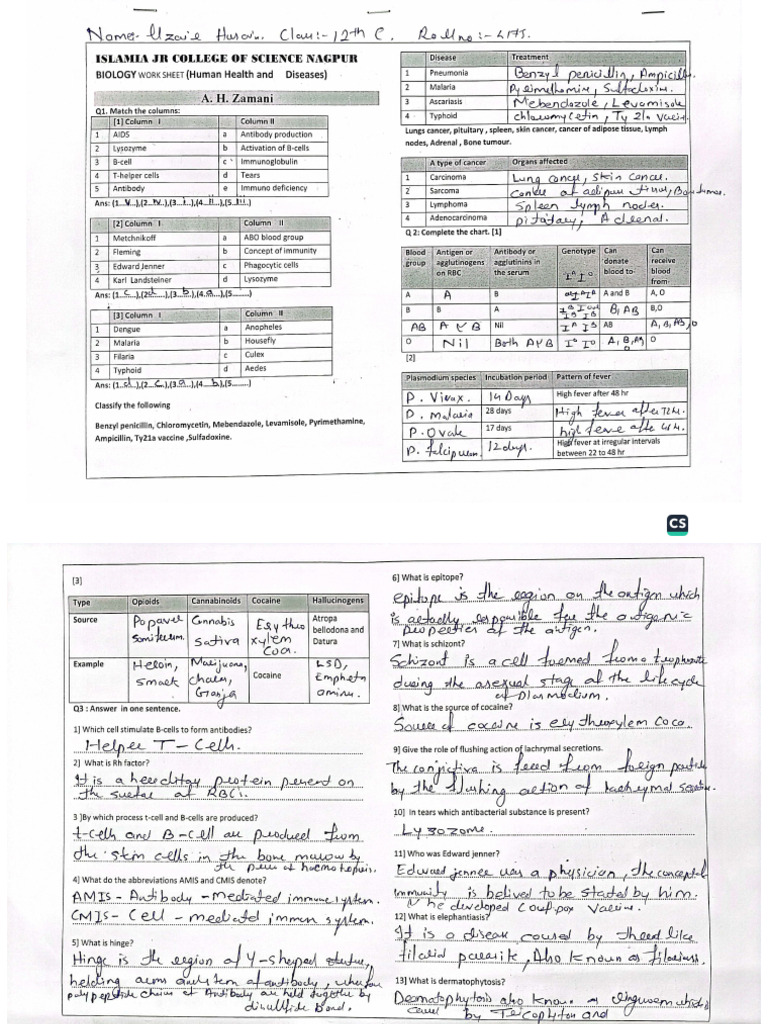 Name:- Uzair Husain. Class:- 12th C. Roll no:-
ISLAMIA JR COLLEGE OF SCIENCE NAGPUR
BIOLOGY WORK SHEET (Human Health and Diseases)
A. H. Zamani
Q1. Match the columns:
[1] Column I Column II
1 AIDS a Antibody production
2 Lysozyme b Activation of B-cells
3 B-cell c Immunoglobulin
4 T-helper cells d Tears
5 Antibody e Immuno deficiency
Ans: (1 v ),(2 iv ),(3 i ),(4 ii ),(5 iii )
[2] Column I Column II
1 Metchnikoff a ABO blood group
2 Fleming b Concept of immunity
3 Edward Jenner c Phagocytic cells
4 Karl Landsteiner d Lysozyme
Ans: (1..c..),(2..d..),(3..b..),(4.a...),(5.......)
[3] Column I Column II
1 Dengue a Anopheles
2 Malaria b Housefly
3 Filaria c Culex
4 Typhoid d Aedes
Ans: (1..d..),(2..c..),(3.a...),(4..b..),(5........)
Classify the following
Benzyl penicillin, Chloromycetin, Mebendazole, Levamisole, Pyrimethamine,
Ampicillin, Ty21a vaccine ,Sulfadoxine.
Disease Treatment
1 Pneumonia Benzyl penicillin, Ampicillin
2 Malaria Pyrimethamine, Sulfadoxine.
3 Ascariasis Mebendazole, Levamisole
4 Typhoid chloromycetin, Ty 21a vaccine
Lungs cancer, pitultary , spleen, skin cancer, cancer of adipose tissue, Lymph
nodes, Adrenal , Bone tumour.
A type of cancer Organs affected
1 Carcinoma Lung cancer, skin cancer.
2 Sarcoma Cancer of adipose tissue, Bone tumor.
3 Lymphoma Spleen lymph nodes.
4 Adenocarcinoma pituitary, Adrenal.
Q 2: Complete the chart. [1]
Blood group Antigen or agglutinogens on RBC Antibody or agglutinins in the serum Genotype Can donate blood to- Can receive blood from-
A A B A and B A, O
B B A B, AB B,O
AB A & B Nil IA IB AB A, B, AB, O
O Nil Both A & B Io Io A, B, AB, O O
[2]
Plasmodium species Incubation period Pattern of fever
P. Vivax. 14 Days High fever after 48 hr
P. malaria 28 days High fever after 72 h.
P. Ovale 17 days high feve after 48 h.
P. falcipuam. 12 days. High fever at irregular intervals
between 22 to 48 hr
CS
[3]
Type Opioids Cannabinoids Cocaine Hallucinogens
Source Papaver Somniferum. Cannabis sativa Erythro xylem Coca. Atropa bellodona and Datura
Example Heroin, Smack Marijuana, charas, Ganja Cocaine LSD, Emphetn
Q3 : Answer in one sentence.
1] Which cell stimulate B-cells to form antibodies?
Helper T - Cells.
2] What is Rh factor?
It is a hereditary protein present on
the surface of RBC's
3 ]By which process t-cell and B-cells are produced?
t-cells and B-cell are produced from
the stem cells in the bone marrow by
the process of haemotopoiesis.
4] What do the abbreviations AMIS and CMIS denote?
AMIS - Antibody - mediated immune system.
CMIS - Cell - mediated immun system.
5] What is hinge?
Hinge is the region of Y-shaped structure,
holding arms and stem of antibody, where four
polypeptide chains of Antibody are held together by
disulfide bond.
6] What is epitope?
epitope is the region on the antigen which
is actually responsible for the antigenic
properties of the antigen.
7] What is schizont?
Schizont is a cell formed from a trophozoite
during the asexual stage of the life cycle
of plasmodium.
8] What is the source of cocaine?
Source of cocaine is erythroxylem coca.
9] Give the role of flushing action of lachrymal secretions.
The conjictiva is freed from foreign particle
by the flushing action of lachrymal secretion.
10] In tears which antibacterial substance is present?
Lysozome.
11] Who was Edward jenner?
Edward jenner was a physician, the concept of
immunity is belived to be started by him.
& he developed Cowpox Vaccine.
12] What is elephantiasis?
It is a disease caused by thread like
filarial parasite, Also known as filariasis.
13] What is dermatophytosis?
Dermatophytosis also known as ringworm which is
caused by Tricophyton and